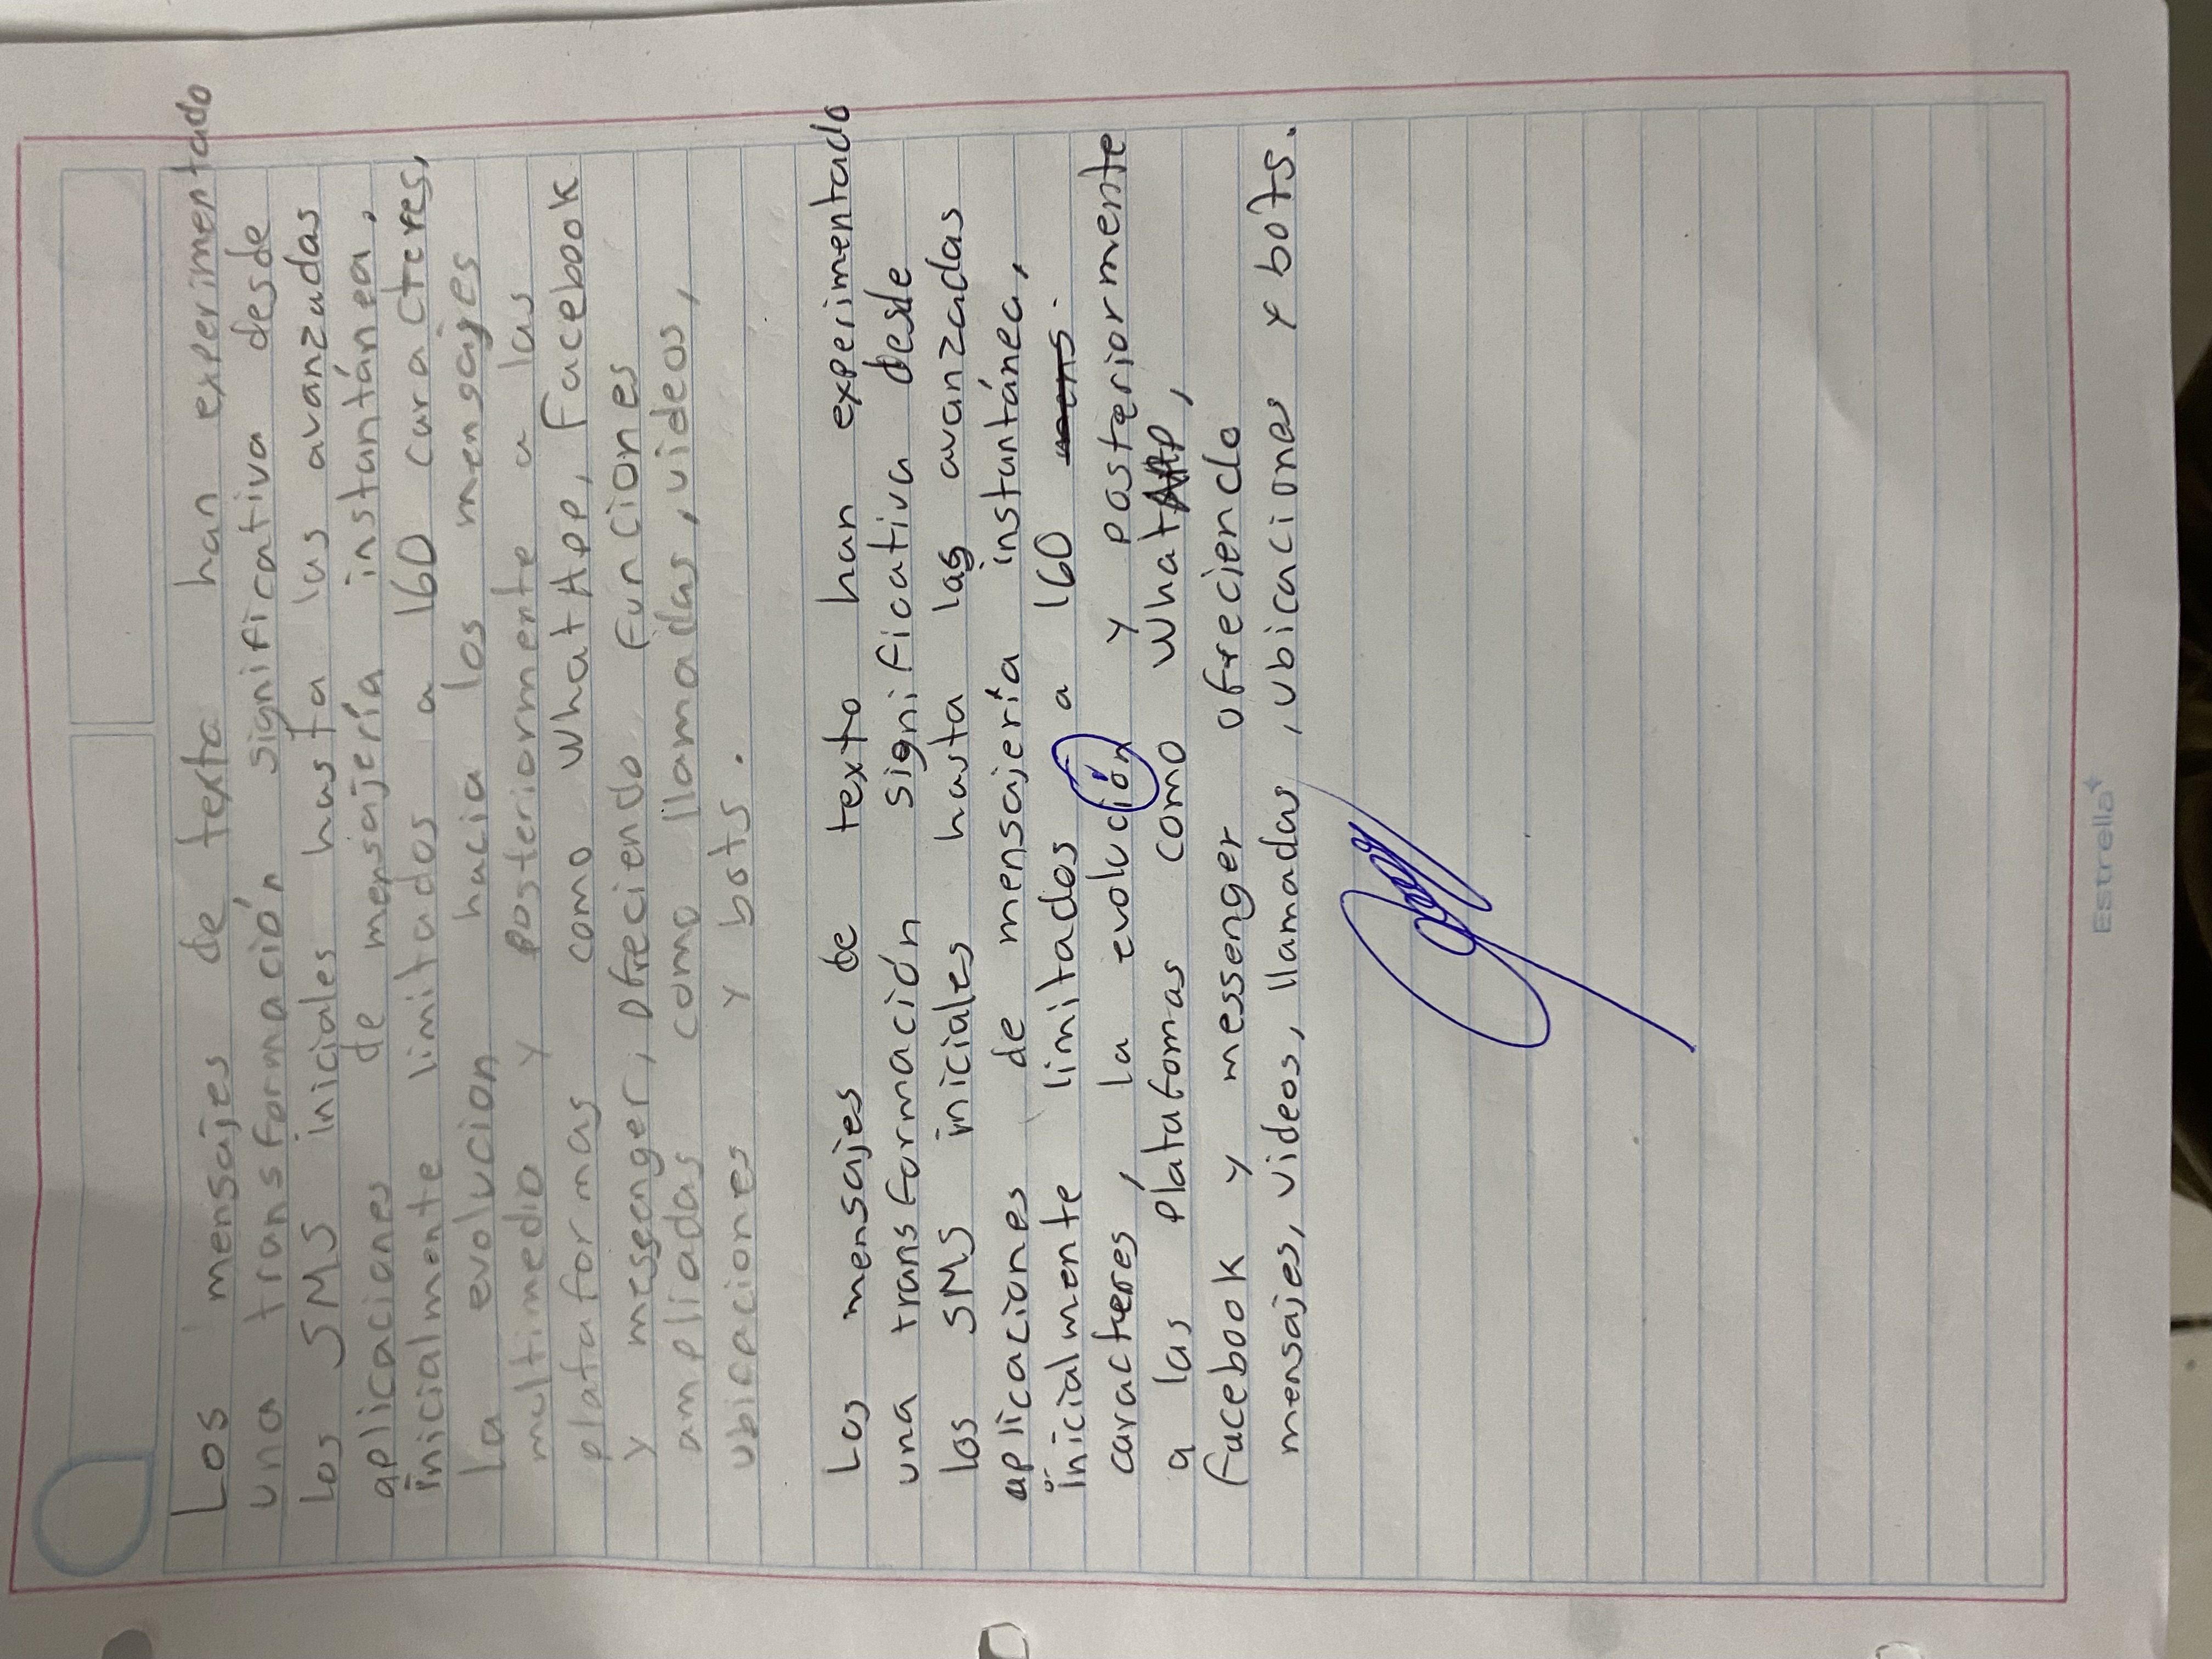 Los mensajes de texto han experimentado
una transformación significativa desde
los SMS iniciales hasta las avanzadas
aplicaciones de mensajería instantánea,
inicialmente limitados a 160 caracteres,
la evolucion hacia los mensajes
multimedia y posteriormente a las
plataformas como whatApp, Facebook
y messenger, ofreciendo funciones
ampliadas como llamadas, videos,
ubicaciones y bots.
Los mensajes de texto han experimentado
una transformación significativa desde
los SMS iniciales hasta las avanzadas
aplicaciones de mensajería instantánea,
inicialmente limitados a 160 mens.
caracteres, la evolución y posteriormente
a las platafomas como whatAPP,
facebook y messenger ofreciendo
mensajes, videos, llamadas, ubicaciones y bots.
Estrella